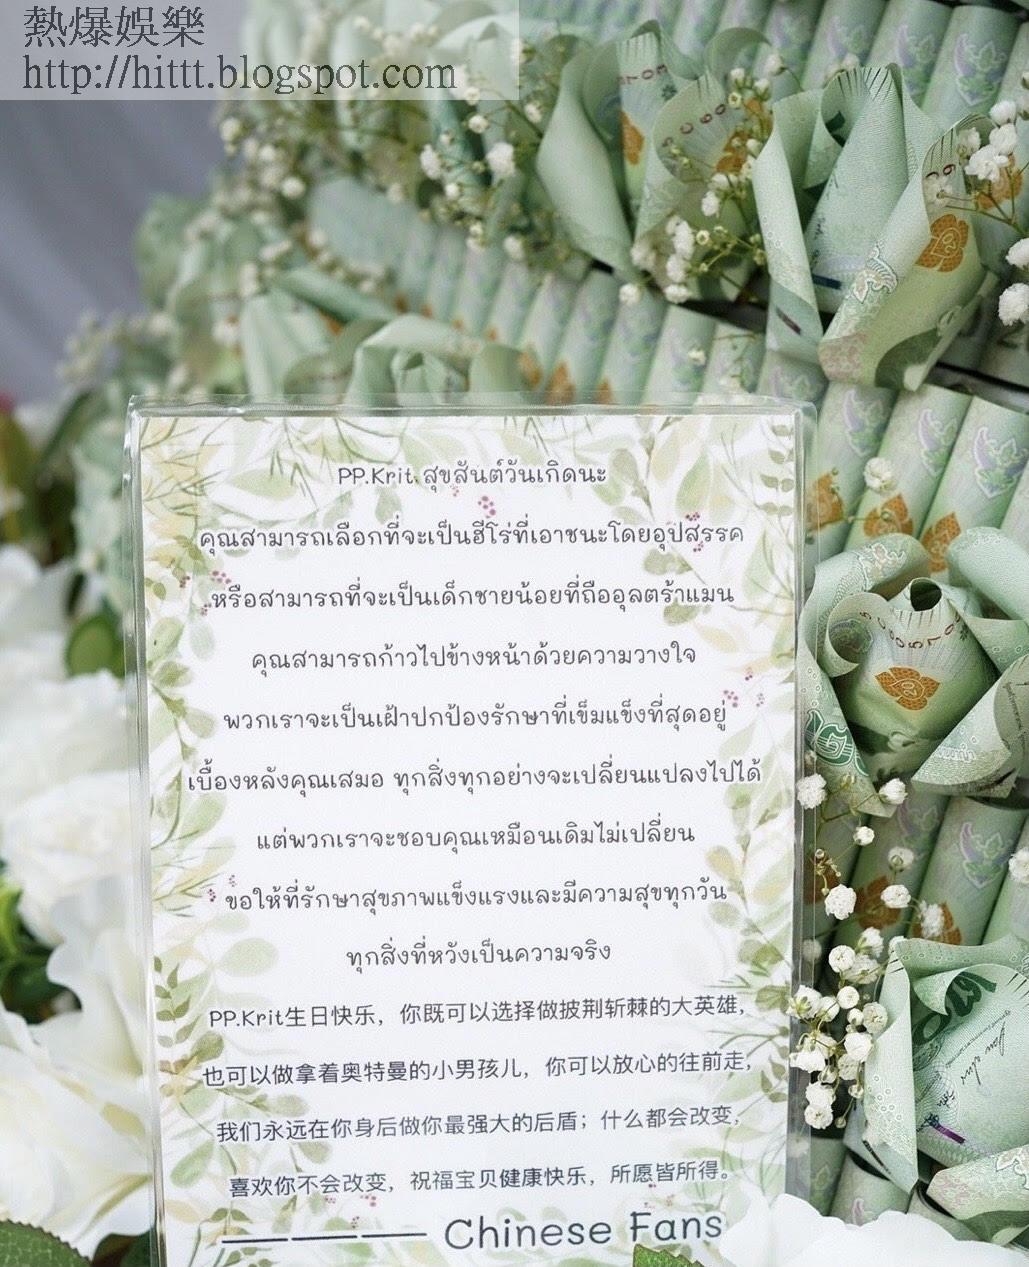 熱爆娛樂
http://hittt.blogspot.com
PP.Krit สุขสันต์วันเกิดนะ
คุณสามารถเลือกที่จะเป็นฮีโร่ที่เอาชนะโดยอุปสรรค
หรือสามารถที่จะเป็นเด็กชายน้อยที่ถืออุลตร้าแมน
คุณสามารถก้าวไปข้างหน้าด้วยความวางใจ
พวกเราจะเป็นเฝ้าปกป้องรักษาที่เข็มแข็งที่สุดอยู่
เบื้องหลังคุณเสมอ ทุกสิ่งทุกอย่างจะเปลี่ยนแปลงไปได้
แต่พวกเราจะชอบคุณเหมือนเดิมไม่เปลี่ยน
ขอให้ที่รักษาสุขภาพแข็งแรงและมีความสุขทุกวัน
ทุกสิ่งที่หวังเป็นความจริง
PP.Krit生日快乐，你既可以选择做披荆斩棘的大英雄，
也可以做拿着奥特曼的小男孩儿，你可以放心的往前走，
我们永远在你身后做你最强大的后盾；什么都会改变，
喜欢你不会改变，祝福宝贝健康快乐，所愿皆所得。
——— Chinese Fans
20
20